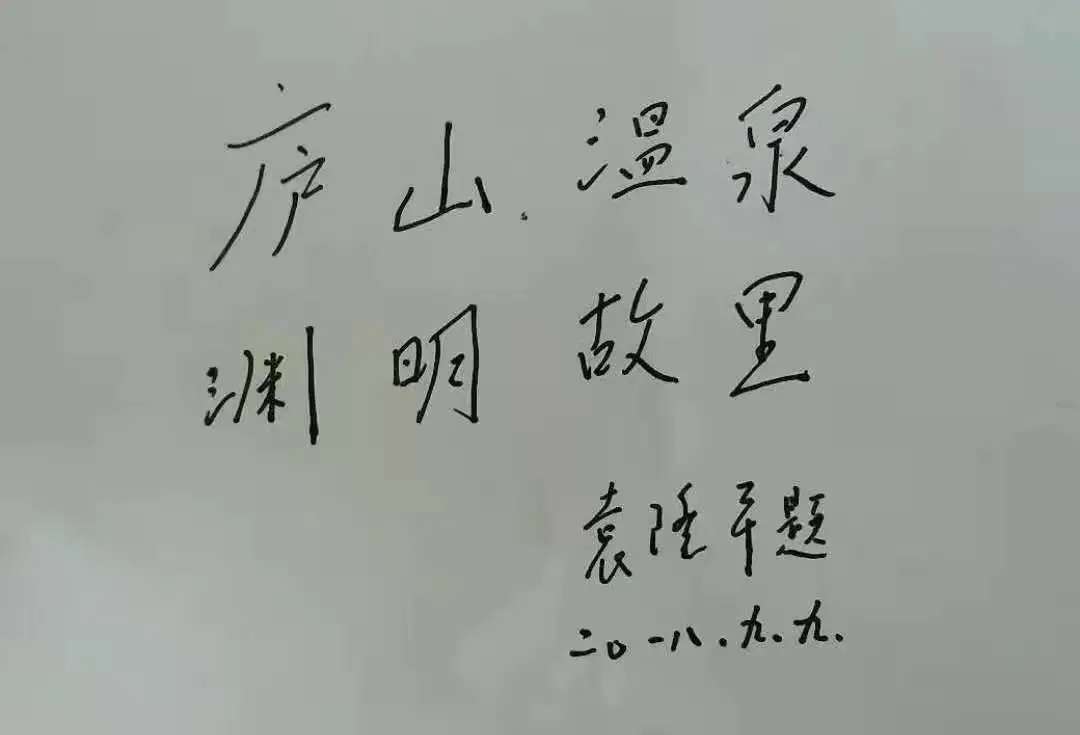 庐山.温泉
渊明故里
袁隆平题
二〇一八.九.九.